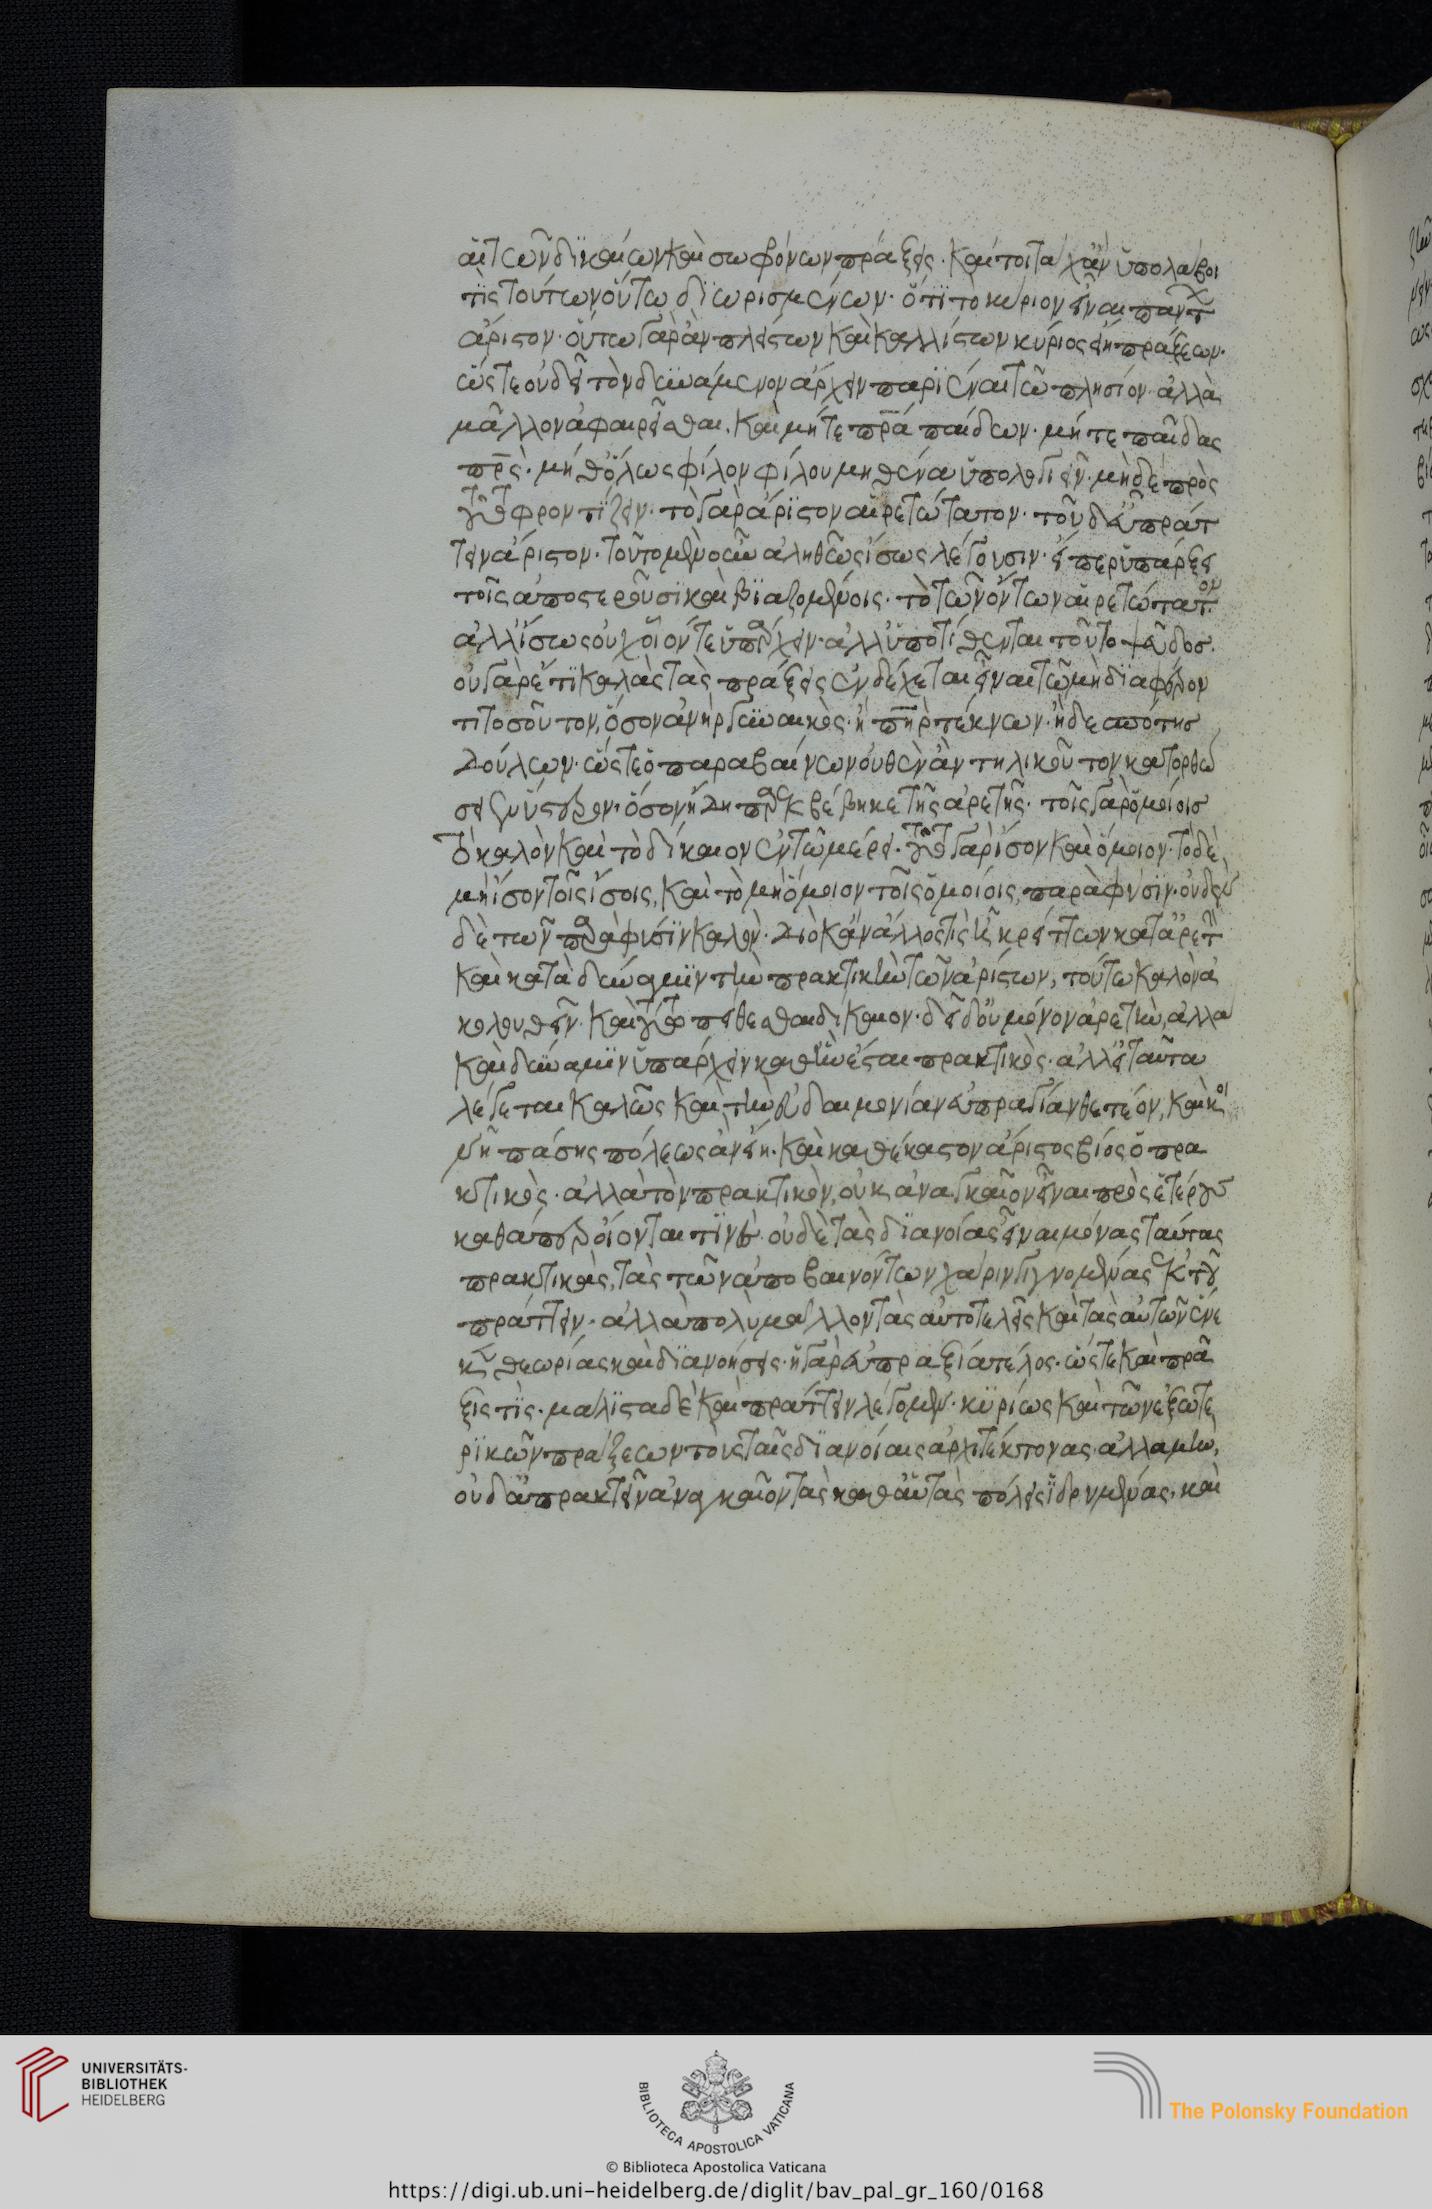 αἱ τῶν δικαίων καὶ σωφρόνων πράξεις. καίτοι τάχ' ἂν ὑπολάβοι
τὶς τούτων οὕτω διωρισμένων. ὅτι τὸ κύριον εἶναι πάντων
ἄριστον. οὕτω γὰρ ἂν πλείστων καὶ καλλίστων κύριος εἴη πράξεων.
ὥστε οὐ δεῖ τὸν δυνάμενον ἄρχειν παριέναι τῶ πλησίον. ἀλλὰ
μᾶλλον ἀφαιρεῖσθαι. καὶ μήτε πρα παίδων. μήτε παῖδας
πρς. μήθ' ὅλως φίλον φίλου μηθένα ὑπολογεῖν. μηδὲ πρὸς
τοῦτο φροντίζειν. τὸ γὰρ ἄριστον αἱρετώτατον. τοῦ δ' εὖ πράτ
τειν ἄριστον. τοῦτο μὲν οὖν ἀληθῶς ἴσως λέγουσιν. εἴπερ ὑπάρξει
τοῖς ἀποστεροῦσι καὶ βιαζομένοις. τὸ τῶν ὄντων αἱρετώτατον
ἀλλ' ἴσως οὐχ οἷόν τε ὑπάρχειν. ἀλλ' ὑποτίθενται τοῦτο ψεῦδος.
οὐ γὰρ ἔτι καλὰς τὰς πράξεις ἐνδέχεται εἶναι τῶ μὴ διαφέρον
τι τοσοῦτον, ὅσον ἀνὴρ γυναικὸς. ἢ πηρ τέκνων. ἢ δεσπότης
δούλων. ὥστε ὁ παραβαίνων οὐθὲν ἂν τηλικοῦτον κατορθώ
σειεν ὕστερον. ὅσον ἤδη παρεκβέβηκε τῆς ἀρετῆς. τοῖς γὰρ ὁμοίοις
τὸ καλὸν καὶ τὸ δίκαιον ἐν τῶ μέρει. τοῦτο γὰρ ἴσον καὶ ὅμοιον. τὸ δὲ
μὴ ἴσον τοῖς ἴσοις, καὶ τὸ μὴ ὅμοιον τοῖς ὁμοίοις, παρὰ φύσιν. οὐδὲν
δὲ τῶν παρὰ φύσιν καλόν. διὸ κἂν ἄλλος τὶς ἦ κρείττων κατ' ἀρετὴν
καὶ κατὰ δύναμιν τὴν πρακτικὴν τῶν ἀρίστων, τούτω καλὸν ἀ
κολουθεῖν. καὶ τούτω πείθεσθαι δίκαιον. δεῖ δ' οὐ μόνον ἀρετὴν, ἀλλὰ
καὶ δύναμιν ὑπάρχειν καθ' ἣν ἔσται πρακτικὸς. ἀλλ' εἰ ταῦτα
λέγεται καλῶς καὶ τὴν εὐδαιμονίαν εὐπραγίαν θετέον, καὶ κοι
νῆ πάσης πόλεως ἂν εἴη. καὶ καθ' ἕκαστον ἄριστος βίος ὁ πρα
κτικὸς. ἀλλὰ τὸν πρακτικὸν, οὐκ ἀναγκαῖον εἶναι πρὸς ἑτέρους
καθάπερ οἴονται τινὲς. οὐδὲ τὰς διανοίας εἶναι μόνας ταύτας
πρακτικὰς, τὰς τῶν ἀποβαινόντων χάριν γιγνομένας ἐκ τοῦ
πράττειν. ἀλλὰ πολὺ μᾶλλον τὰς αὐτοτελεῖς καὶ τὰς αὑτῶν ἕνε
κεν θεωρίας καὶ διανοήσεις. ἡ γὰρ εὐπραξία τέλος. ὥστε καὶ πρᾶ
ξις τὶς. μάλιστα δὲ καὶ πράττειν λέγομεν. κυρίως καὶ τῶν ἐξωτε
ρικῶν πράξεων τοὺς ταῖς διανοίαις ἀρχιτέκτονας. ἀλλὰ μὴν,
οὐδ' ἀπρακτεῖν ἀναγκαῖον τὰς καθ' αὑτὰς πόλεις ἱδρυμένας. καὶ
UNIVERSITÄTS-
BIBLIOTHEK
HEIDELBERG
BIBLIOTECA APOSTOLICA VATICANA
© Biblioteca Apostolica Vaticana
The Polonsky Foundation
https://digi.ub.uni-heidelberg.de/diglit/bav_pal_gr_160/0168